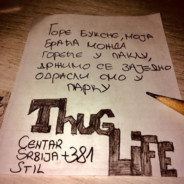 Горе Буксне, моја
браћа можда
гореће у паклу,
држимо се заједно
одрасли смо у
парку
Thug
Life
Centar
Srbija +381
Stil